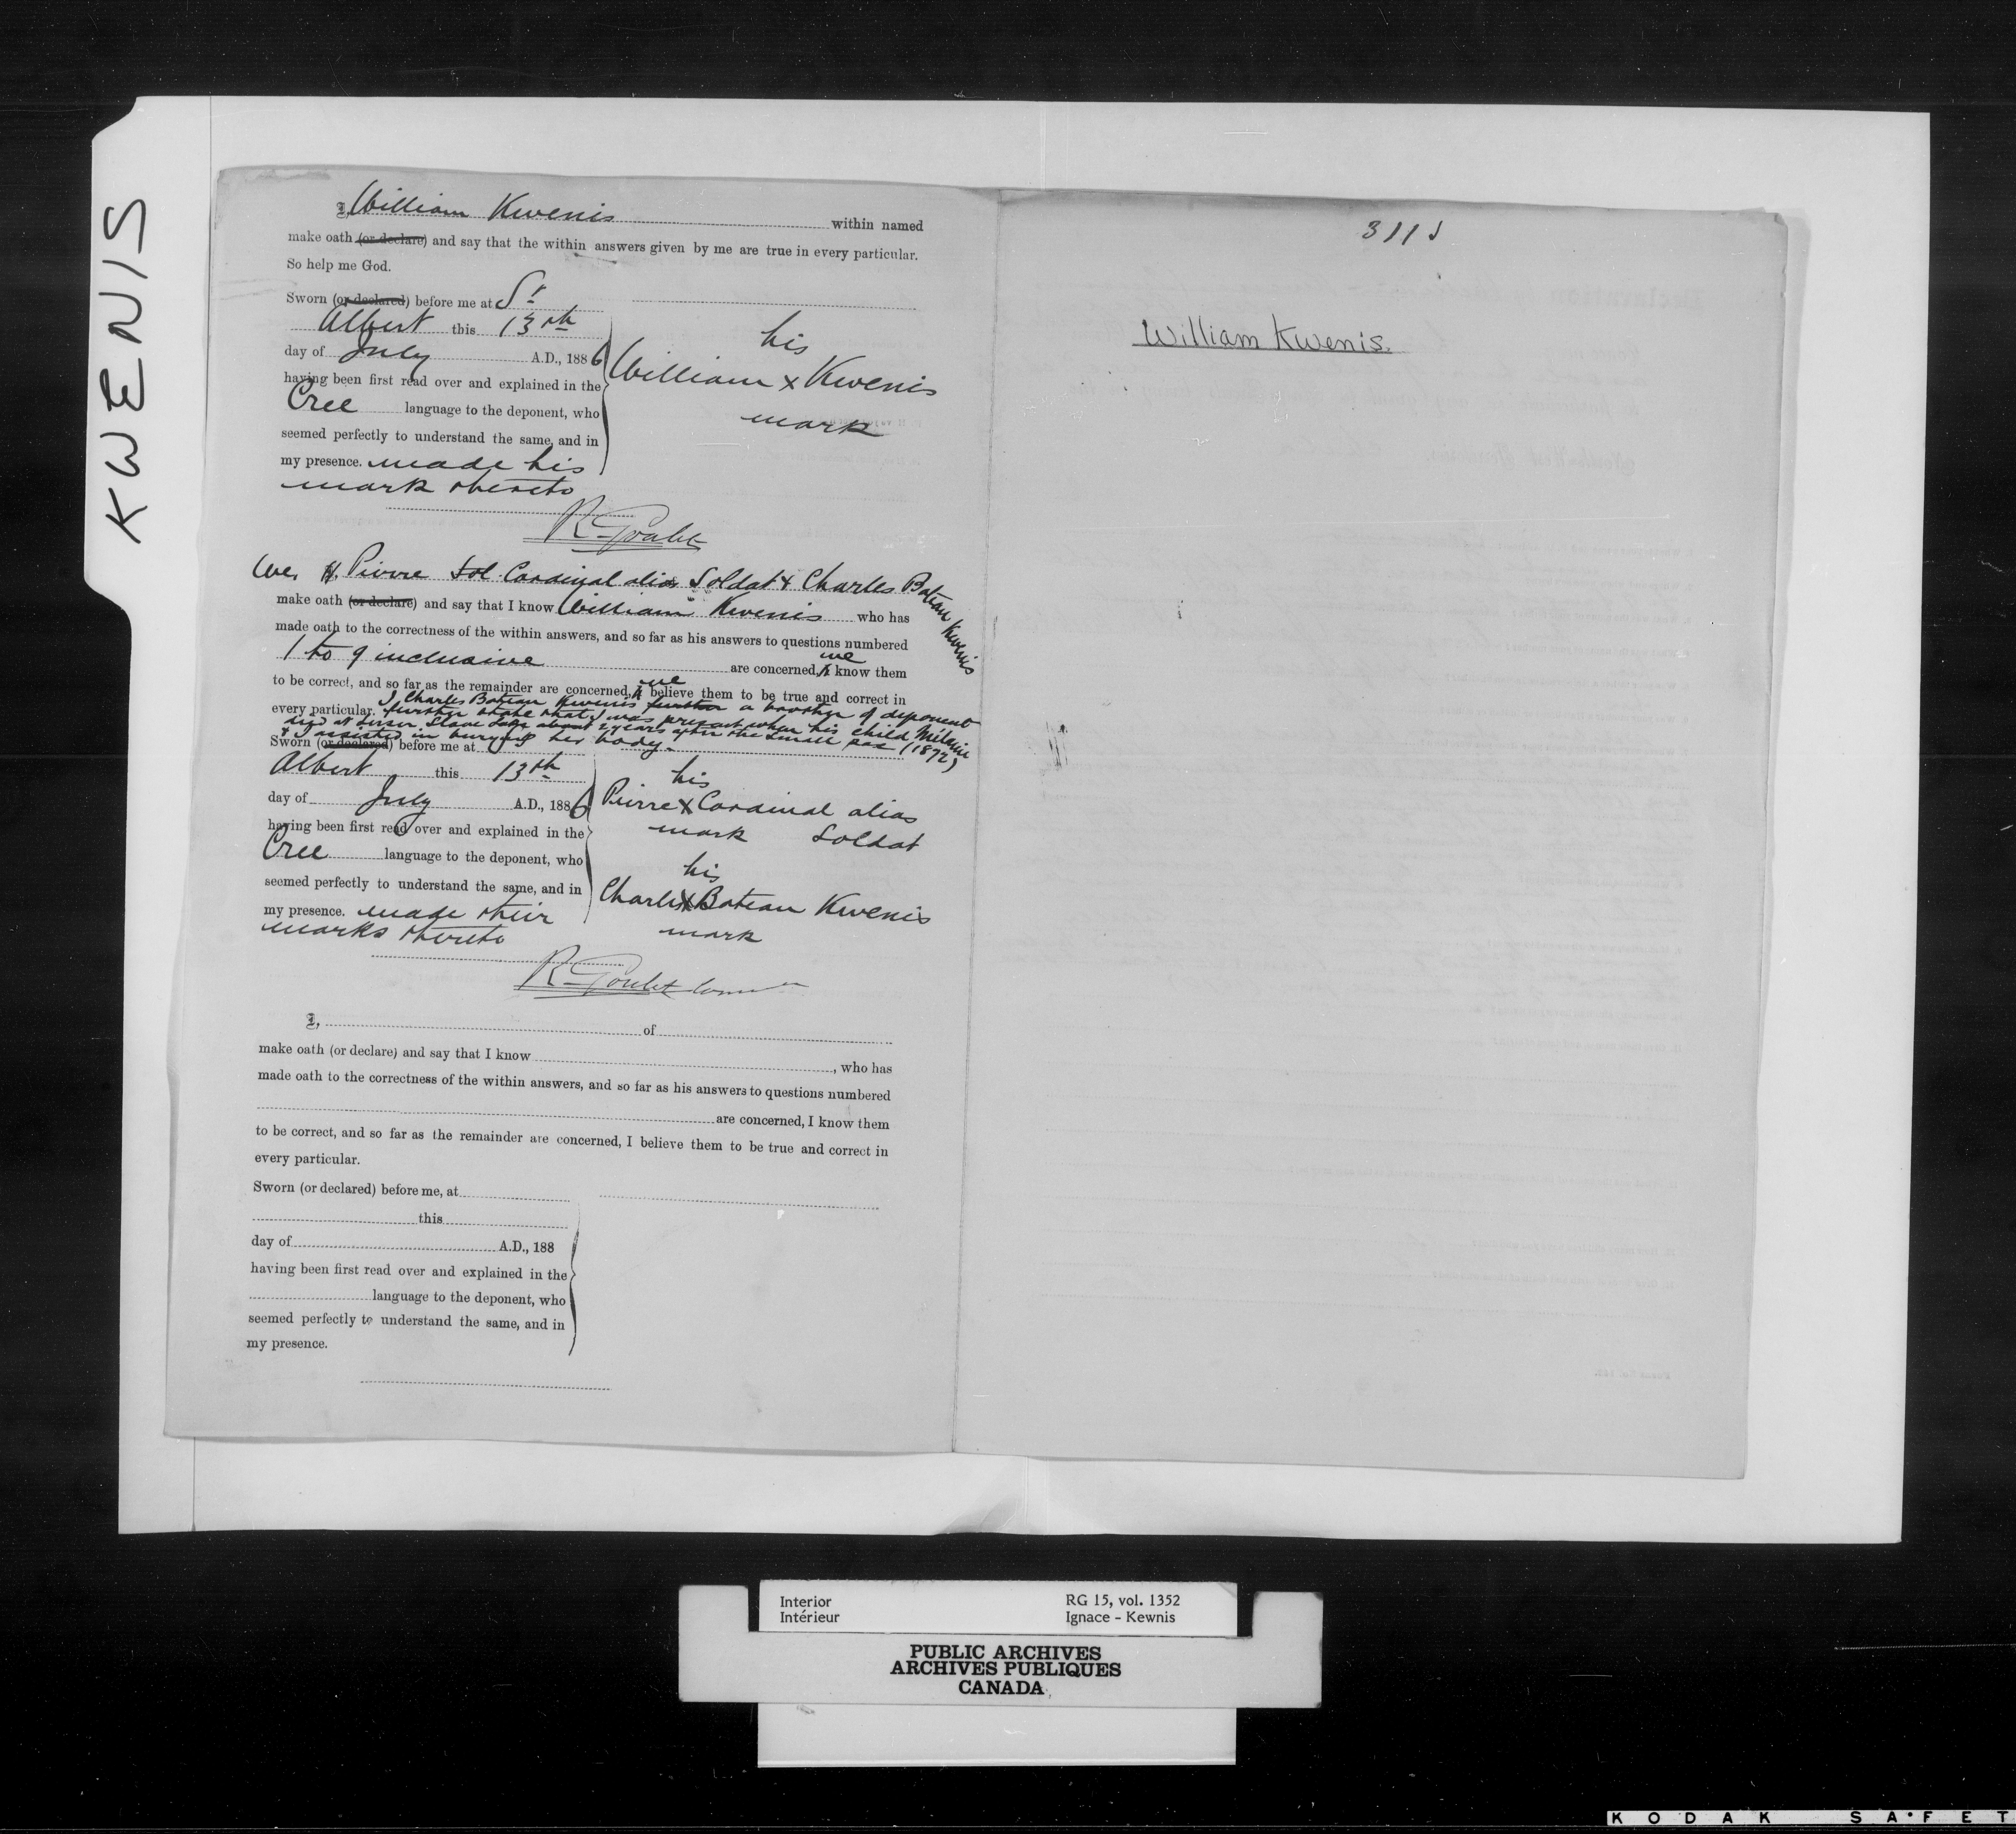 KWENIS
I, William Kwenis within named
make oath (or declare) and say that the within answers given by me are true in every particular.
So help me God.
Sworn (or declared) before me at St
Albert this 13th
day of July A.D., 1886
having been first read over and explained in the
Cree language to the deponent, who
seemed perfectly to understand the same, and in
my presence. made his
mark thereto
his
William x Kwenis
mark
R. Goulet
We, Pierre Cardinal alias Soldat & Charles Bateau Kwenis
make oath (or declare) and say that I know William Kwenis who has
made oath to the correctness of the within answers, and so far as his answers to questions numbered
1 to 9 inclusive are concerned, we know them
to be correct, and so far as the remainder are concerned, we believe them to be true and correct in
every particular. I Charles Bateau Kwenis further a brother of deponent
further state that I was present when his child Mélanie
died at Lesser Slave Lake about 2 years after the small pox (1872)
& I assisted in burying her body.
Sworn (or declared) before me at
Albert this 13th
day of July A.D., 1886
having been first read over and explained in the
Cree language to the deponent, who
seemed perfectly to understand the same, and in
my presence. made their
marks thereto
his
Pierre x Cardinal alias
mark Soldat
his
Charles x Bateau Kwenis
mark
R. Goulet
I, of
make oath (or declare) and say that I know , who has
made oath to the correctness of the within answers, and so far as his answers to questions numbered
are concerned, I know them
to be correct, and so far as the remainder are concerned, I believe them to be true and correct in
every particular.
Sworn (or declared) before me, at
this
day of A.D., 188
having been first read over and explained in the
language to the deponent, who
seemed perfectly to understand the same, and in
my presence.
William Kwenis.
Interior RG 15, vol. 1352
Intérieur Ignace - Kewnis
PUBLIC ARCHIVES
ARCHIVES PUBLIQUES
CANADA
KODAK SAFET